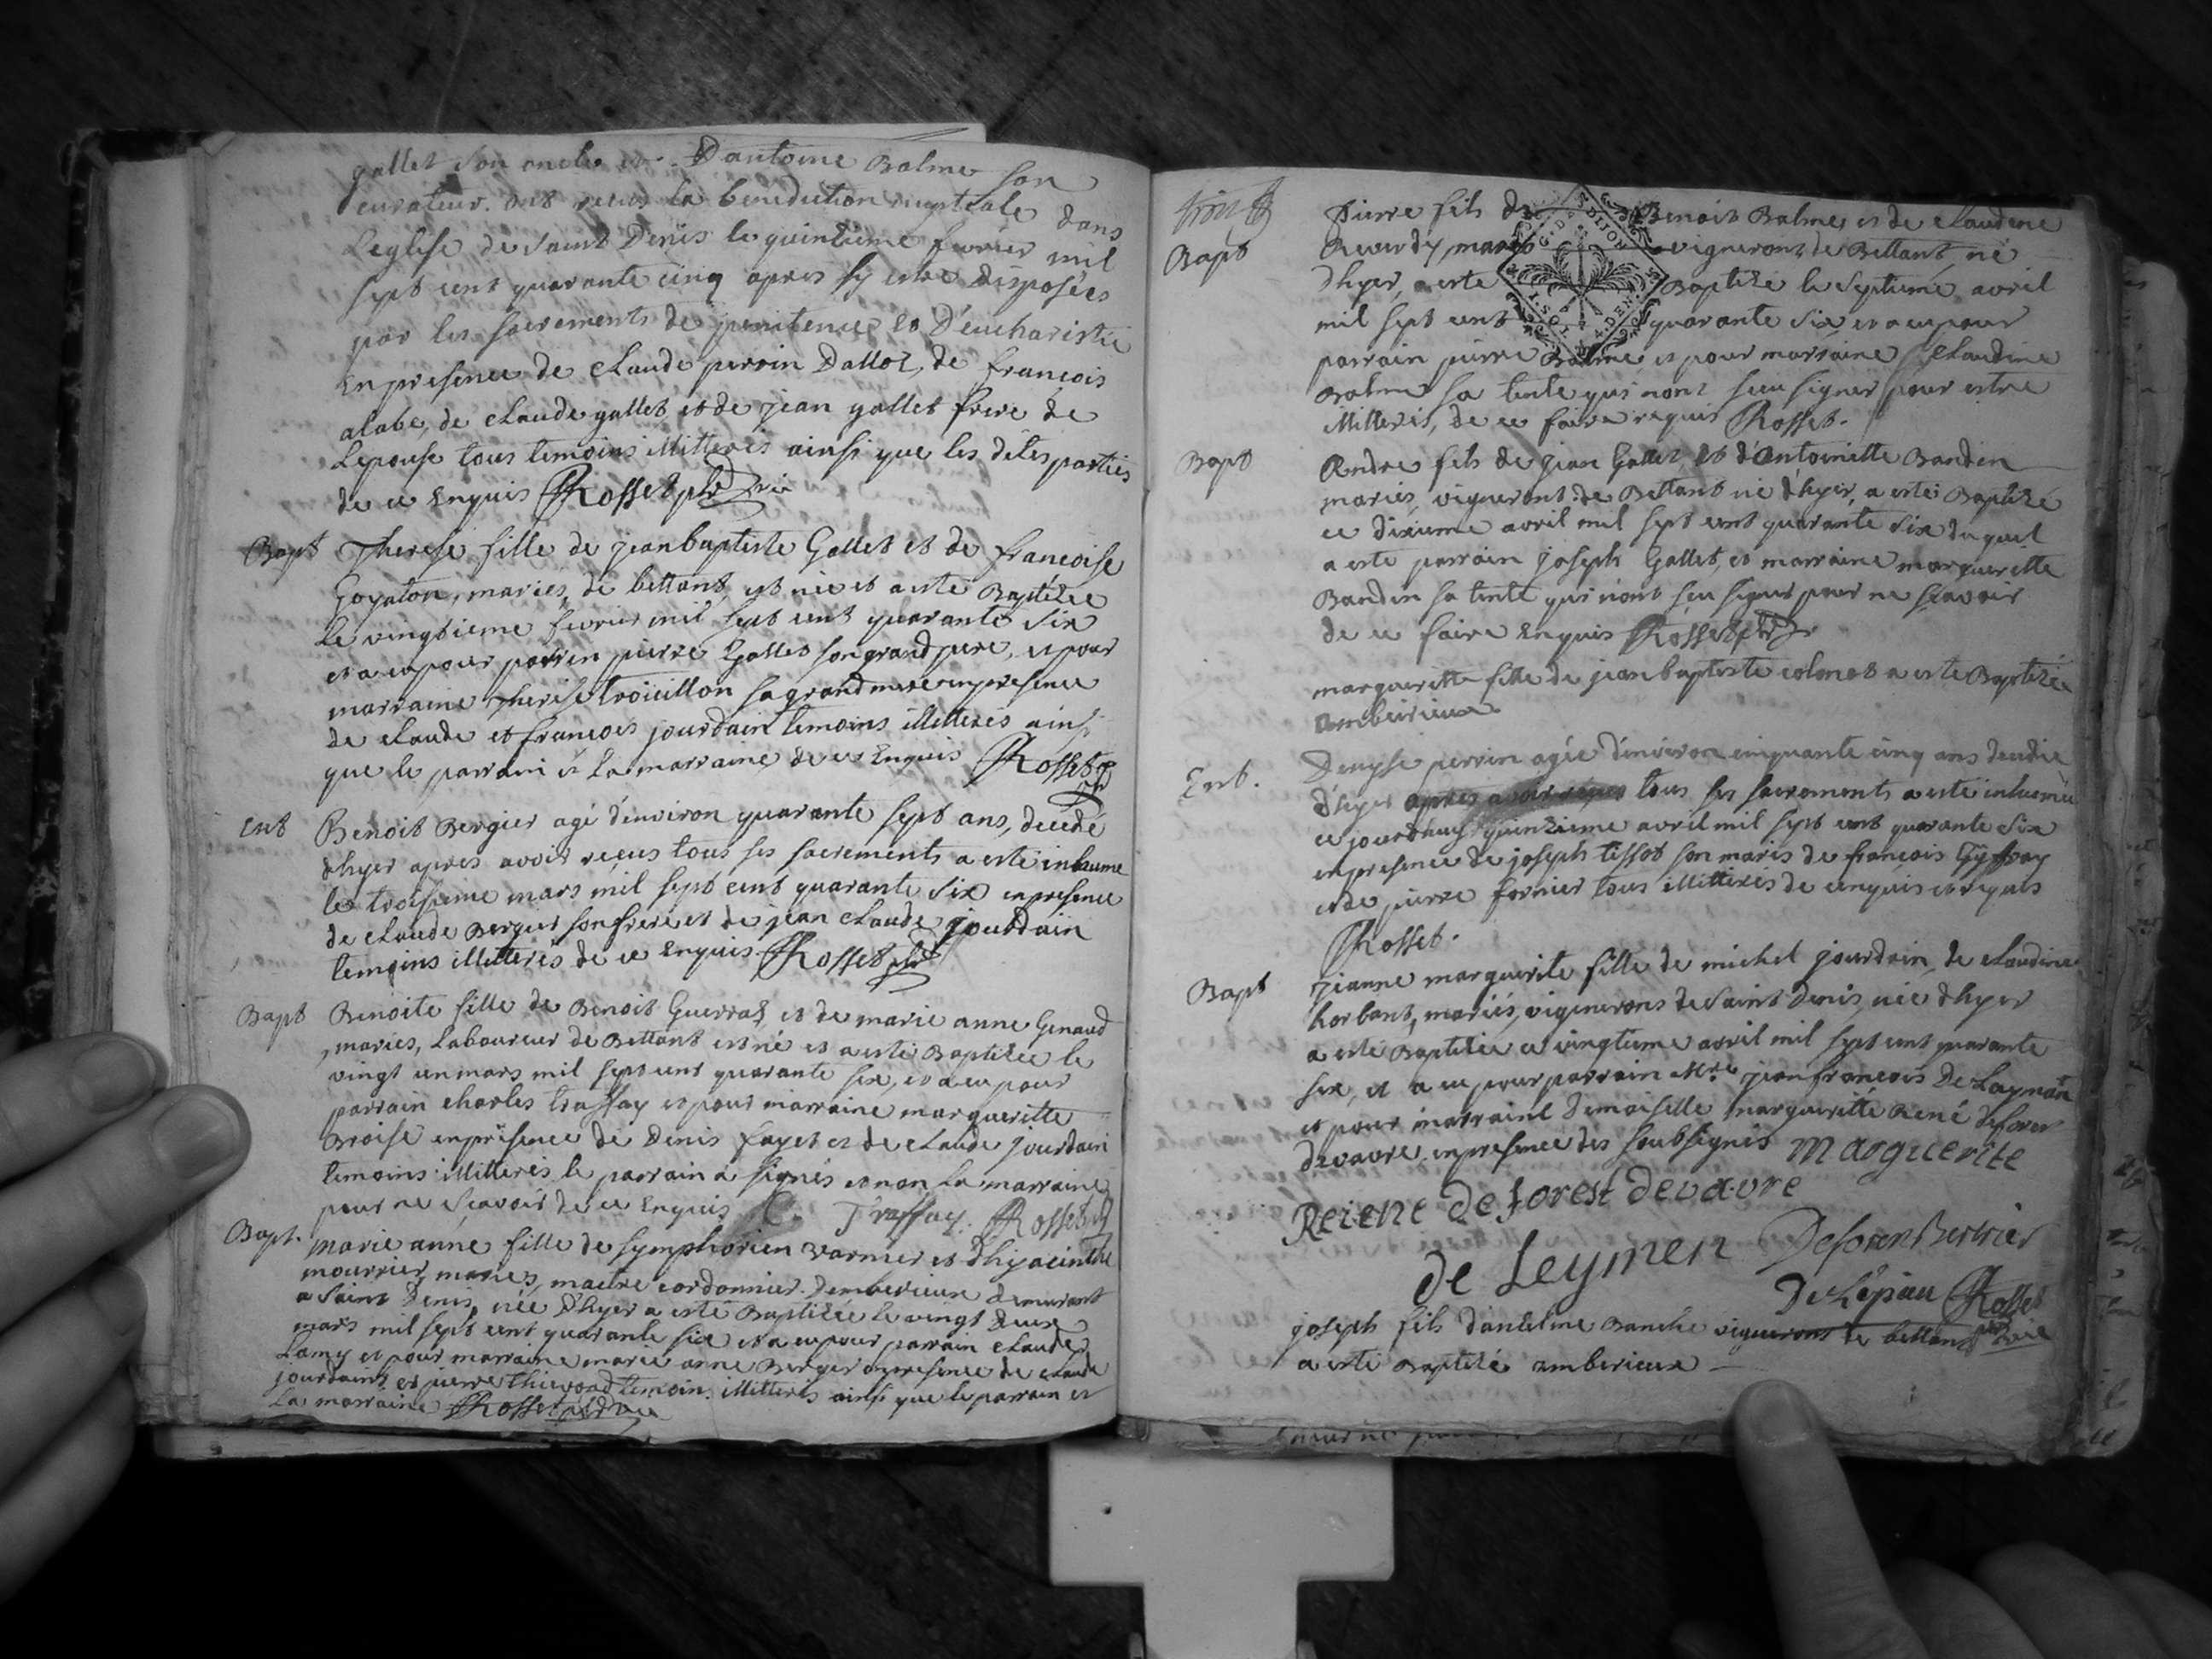 gallet son oncle et D'antoine Balme son
curateur. ont reçus la benediction nuptiale dans
L'eglise de saint Denis le quinzieme fevrier mil
sept cent quarante cinq apres sy estre disposées
par les sacrements de penitence et D'eucharistie
en presence de claude perrin Dalloz, de françois
alabe, de claude gallet et de jean gallet frere de
Lepouse tous temoins illitterés ainsi que les dites parties
de ce enquis Rosset ptre
Bapt Therese fille de jean baptiste Gallet et de françoise
Goyaton, mariés, de bettant, est née et a esté Baptizée
Le vingtieme fevrier mil sept cent quarante six
et a eu pour parrin pierre Gallet son grand pere, et pour
marraine Therese troicillon sa grand mere en presence
de claude et françois jourdain temoins illitterés ainsi
que le parrain et La marraine de ce Enquis Rosset
Ent Benoit Bergier agé d'environ quarante sept ans, decedé
d'hyer apres avoir reçus tous ses sacrements a esté inhumé
le troisieme mars mil sept cent quarante six en presence
de claude Bergier son frere et de jean claude jourdain
temoins illitterés de ce Enquis. Rosset ptre
Bapt Benoite fille de Benoit Guerraz et de marie anne Genaud
mariés, Laboureur de Bettant est né et a esté Baptizée le
vingt un mars mil sept cent quarante six, et a eu pour
parrain charles traffay et pour marraine margueritte
Broise en presence de Denis fayet et de claude jourdain
temoins illitterés le parrain a signés et non la marraine
pour ne scavoir de ce Enquis C. Traffay. Rosset
Bapt. Marie anne fille de symphorien varnier et d'hyacinthe
mourrier, mariés, maitre cordonnier d'emberieux demurant
a Saint Denis, née d'hyer a esté Baptizée le vingt deux
mars mil sept cent quarante six et a eu pour parrain claude
Lamy et pour marraine marie anne Berger en presence de claude
jourdain et pierre temoins illitterés ainsi que le parrain et
La marraine Rosset
trois
Bapt Pierre fils de Benoit Balme et de claudine
mariés vignerons de Bettant, né
d'hyer, a esté Baptizé le septieme avril
mil sept cent quarante six, et a eu pour
parrain pierre Balme, et pour marraine claudine
Balme sa tente qui n'ont sceu signer pour estre
illitterés, de ce faire requis Rosset.
Bapt Andre fils de jean Gallet, et d'Antoinette Bandin
mariés, vignerons de Bettant né d'hyer, a esté Baptizé
ce dixieme avril mil sept cent quarante six duquel
a esté parrain joseph Gallet, et marraine margueritte
Bandin sa tente qui n'ont sceu signer pour ne scavoir
de ce faire Enquis Rosset
margueritte fille de jean baptiste colomb a esté Baptizée
amberieux
Ent. Denyse perrin agée d'environ cinquante cinq ans decedée
d'hyer apres avoir reçus tous ses sacrements a esté inhumée
ce jourd'huy quinzieme avril mil sept cent quarante six
en presence de joseph tissot son maris de françois
et de pierre fornier tous illitterés de ce enquis et requis
Rosset.
Bapt jeanne marguerite fille de michel jourdain, de claudine
horbant, mariés, vignerons de saint Denis, née d'hyer
a esté Baptizée ce vingtieme avril mil sept cent quarante
six, et a eu pour parrain Mre jean françois De Layman
et pour marraine Demoiselle margueritte René deforest
devavre, en presence des soubsignés Marguerite
Reiene de forest devavre
de Leymen Deforest Bertrier
De Lépiau Rosset
joseph fils d'antelme Banche vignerons de bettant
a esté Baptizé amberieux